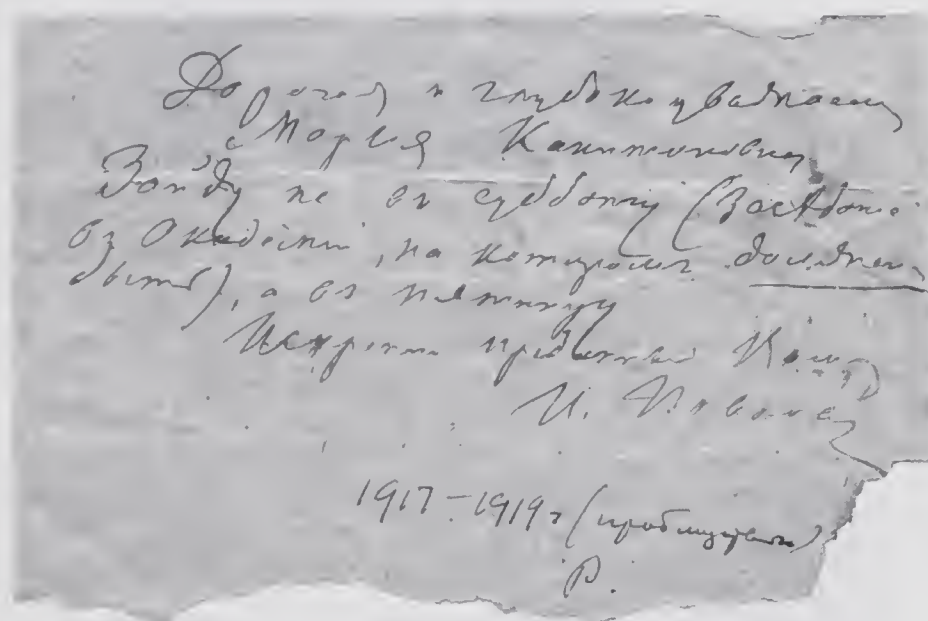 Дорогая и глубокоуважаемая
Мария Капитоновна
Зайду не въ субботу (Засѣданіе
въ Академіи, на которомъ долженъ
быть), а въ пятницу
Искренно преданный Вамъ
И. Павловъ
1917–1919 г (приблизительно)
Р.